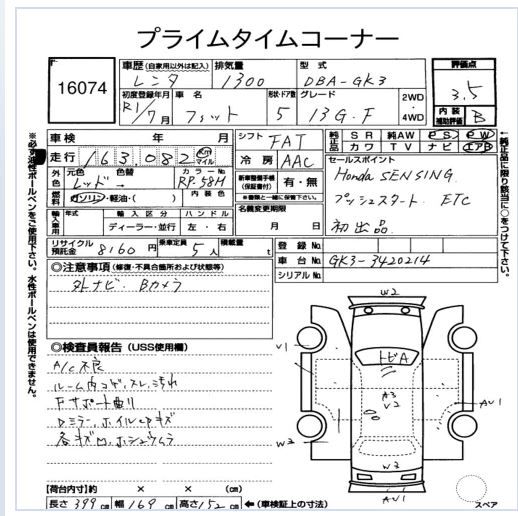 プライムタイムコーナー
16074
車歴(自家用以外は記入) 排気量 型式 評価点
レンタ 1300 DBA-GK3 3.5
初度登録年月 車名 形状・ドア数 グレード 2WD・4WD 内装補助評価 B
R1/7月 フィット 5 13G.F
車検 年 月 シフト FAT 純正品 SR 純AW PS PW
走行 163,082 km マイル 冷房 AAC カワ TV ナビ エアB
外色 元色 色替 カラーNo 内装色
レッド→ RP-58H
燃料 ガソリン・軽油・( )
新車整備手帳(保証書付) 有・無
※書類と一緒に保管下さい。
セールスポイント
Honda SENSING
プッシュスタート ETC
初出品
輸入車用 年式 輸入区分 ハンドル 名義変更期限
ディーラー・並行 左・右 月 日
リサイクル預託金 8160円 乗車定員 5人 積載量 t
登録No.
車台No. GK3-3420214
シリアルNo.
◎注意事項(修復・不具合箇所および状態等)
外しナビ、Bカメラ
◎検査員報告(USS使用欄)
A/C不良
ルーム内コゲ、スレ、汚れ
Fサポート曲り
Dミラー、ホイルCPキズ
各キズ凹、ホシュウムラ
W2
V1
トビA
A3
V2
AU1
W3
W3
AU1
スペア
【荷台内寸】約 × × (cm)
長さ 399 cm 幅 169 cm 高さ 152 cm ←(車検証上の寸法)
※必ず油性ボールペンをご使用下さい。水性ボールペンは使用できません。
←純正品に限り該当に○をつけて下さい。